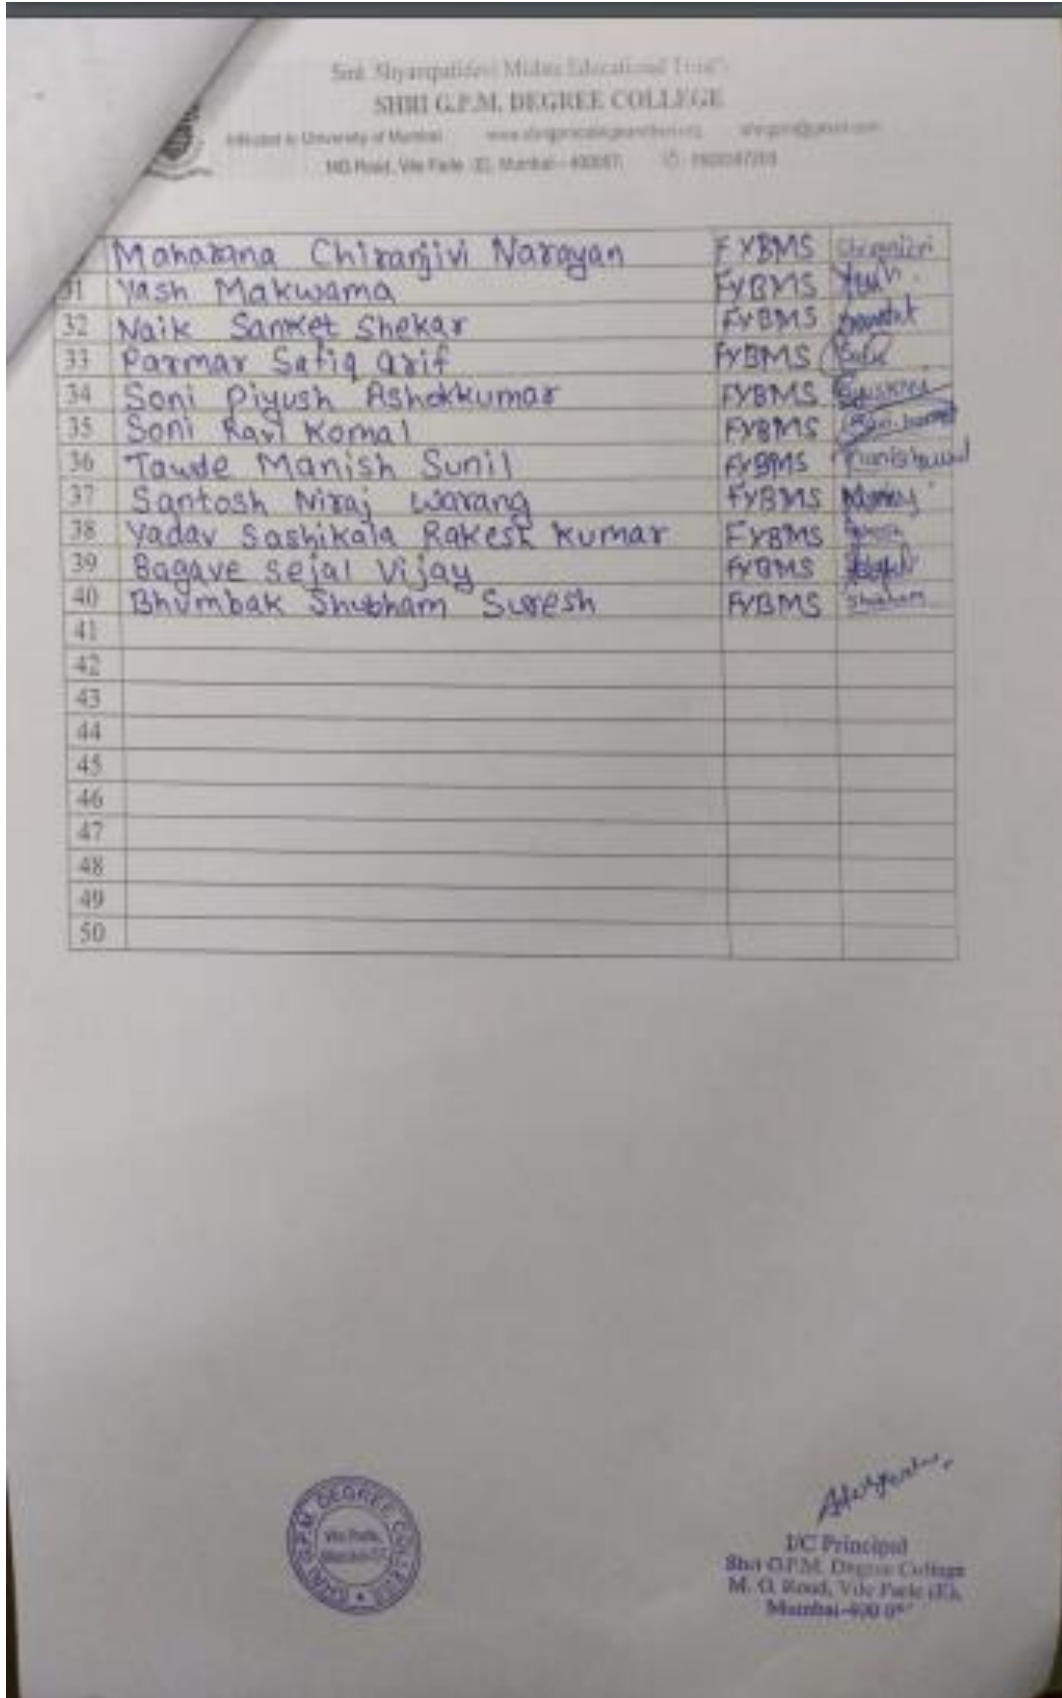 Smt. Shyampatidevi Mishra Educational Trust's
SHRI G.P.M. DEGREE COLLEGE
University of Mumbai
MG Road, Vile Parle (E), Mumbai - 400057.
Maharana Chiranjivi Narayan FYBMS Chiranjivi
31 Yash Makwama FYBMS Yash
32 Naik Sanket Shekar FYBMS Sanket
33 Parmar Safiq arif FYBMS
34 Soni Piyush Ashokkumar FYBMS
35 Soni Ravi Komal FYBMS
36 Tawde Manish Sunil FYBMS
37 Santosh Niraj Warang FYBMS
38 Yadav Sashikala Rakesh Kumar FYBMS
39 Bagave Sejal Vijay FYBMS
40 Bhumbak Shubham Suresh FYBMS Shubham
41
42
43
44
45
46
47
48
49
50
SHRI G.P.M. DEGREE COLLEGE
Vile Parle,
I/C Principal
Shri G.P.M. Degree College
M. G. Road, Vile Parle (E),
Mumbai-400 057